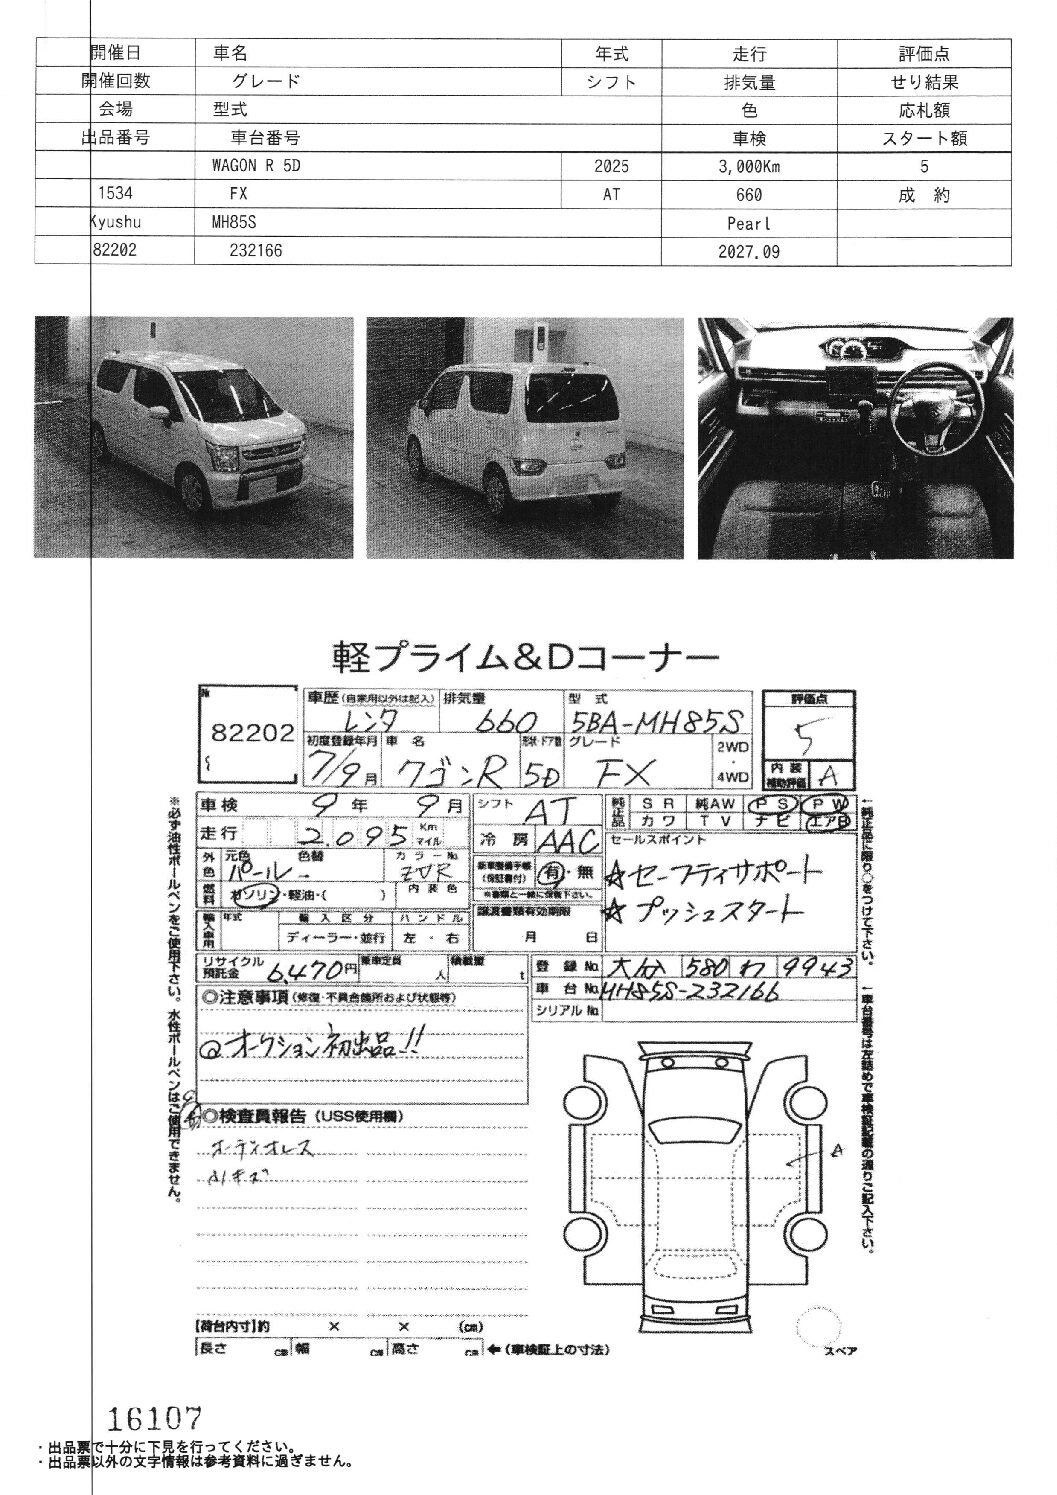 開催日 車名 年式 走行 評価点
開催回数 グレード シフト 排気量 せり結果
会場 型式 色 応札額
出品番号 車台番号 車検 スタート額
WAGON R 5D 2025 3,000Km 5
1534 FX AT 660 成 約
Kyushu MH85S Pearl
82202 230166 2027.09
軽プライム&Dコーナー
№ 82202
車歴(自家用以外は記入) 排気量 型 式 評価点
レンタ 660 5BA-MH85S 5
初度登録年月 車 名 形状・ドア数 グレード 2WD・4WD 内 装 補助評価 A
7/9月 ワゴンR 5D FX
車検 9年 9月 シフト AT 純正品 SR 純AW PS PW
走行 2.095 Km マイル 冷 房 AAC カワ TV ナビ エアB
外色 元色 色替 カラーNo. セールスポイント
パール ー ZVR 新車整備手帳(保証書付) 有・無 ☆セーフティサポート
燃料 ガソリン・軽油・( ) 内 装 色 ※書類と一緒に保管下さい。
☆プッシュスタート
輸入車用 年式 輸 入 区 分 ハ ン ド ル 譲渡書類有効期限
ディーラー・並行 左・右 月 日
リサイクル預託金 6,470円 乗車定員 人 積載量 t 登 録 No. 大分 580 わ 9943
車 台 No. MH85S-232166
◎注意事項(修復・不具合箇所および状態等) シリアル No.
@オークション初出品!!
◎検査員報告(USS使用欄)
オーディオレス
Aキズ
A
【荷台内寸】約 × × (cm)
長さ cm 幅 cm 高さ cm ←(車検証上の寸法)
スペア
※必ず油性ボールペンをご使用下さい。水性ボールペンはご使用できません。
←純正品に限り○をつけて下さい。
←車台番号は左詰めで車検証記載の通りご記入下さい。
16107
・出品票で十分に下見を行ってください。
・出品票以外の文字情報は参考資料に過ぎません。